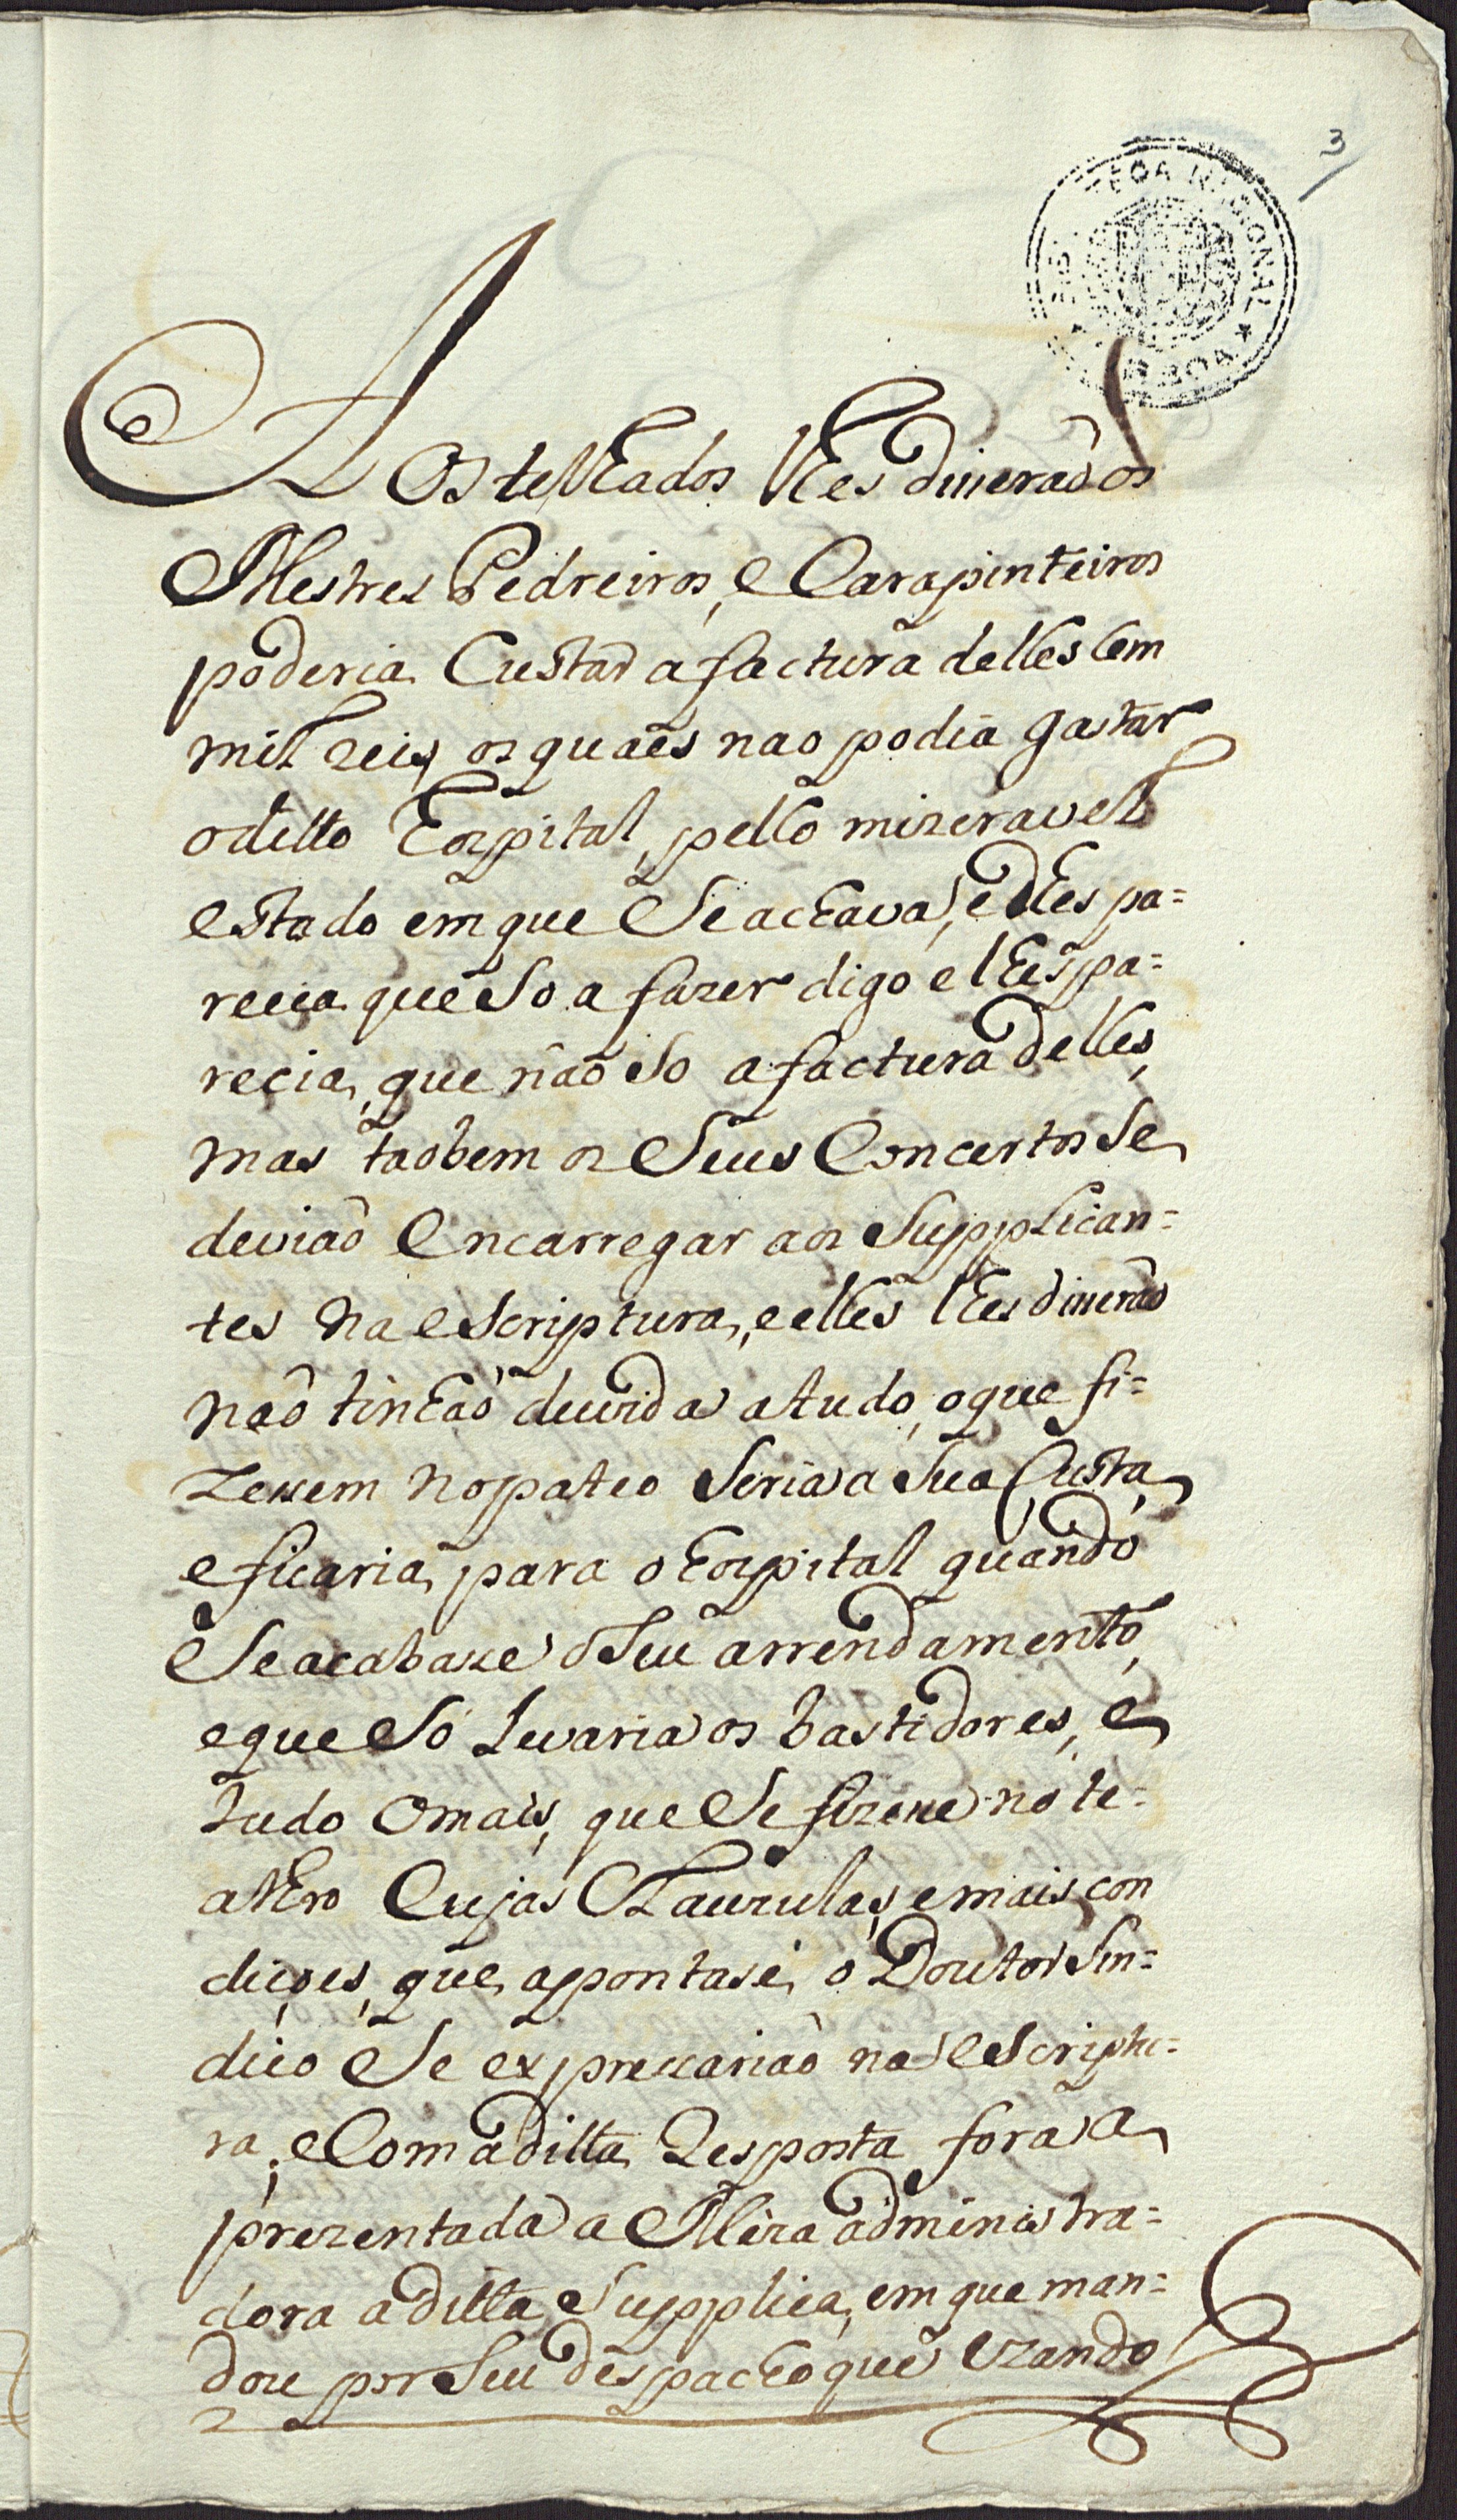 3
Os telhados lhes diuerão os
Mestres Pedreiros, e Carapinteiros
poderia Custar a factura delles Cem
mil reis, os quaes nao podia gastar
o ditto hospital, pello mizeravel
estado em que Se achava, e lhes pa=
recia que So a fazer digo e lhes pa=
recia, que não So a factura delles,
mas taobem os Seus Concertos Se
devião Encarregar aos Supplican=
tes na escriptura, e elles lhes diuerão
não tinhão duvida a tudo, o que fi=
zessem no pateo Seria a Sua Custa,
e ficaria, para o hospital quando
Se acabasse o Seu arrendamento,
e que Só Levaria os bastidores, e
tudo o mais, que Se fizesse no te=
athro Cujas Clauzulas, e mais con
diçoes, que, apontase, o Doutor Sin=
dico Se expressarião na escriptu=
ra, e Com a ditta, Resposta fora a
prezentada a Meza administra=
dora a ditta Supplica, em que man=
dou por Seu despacho que Vzando